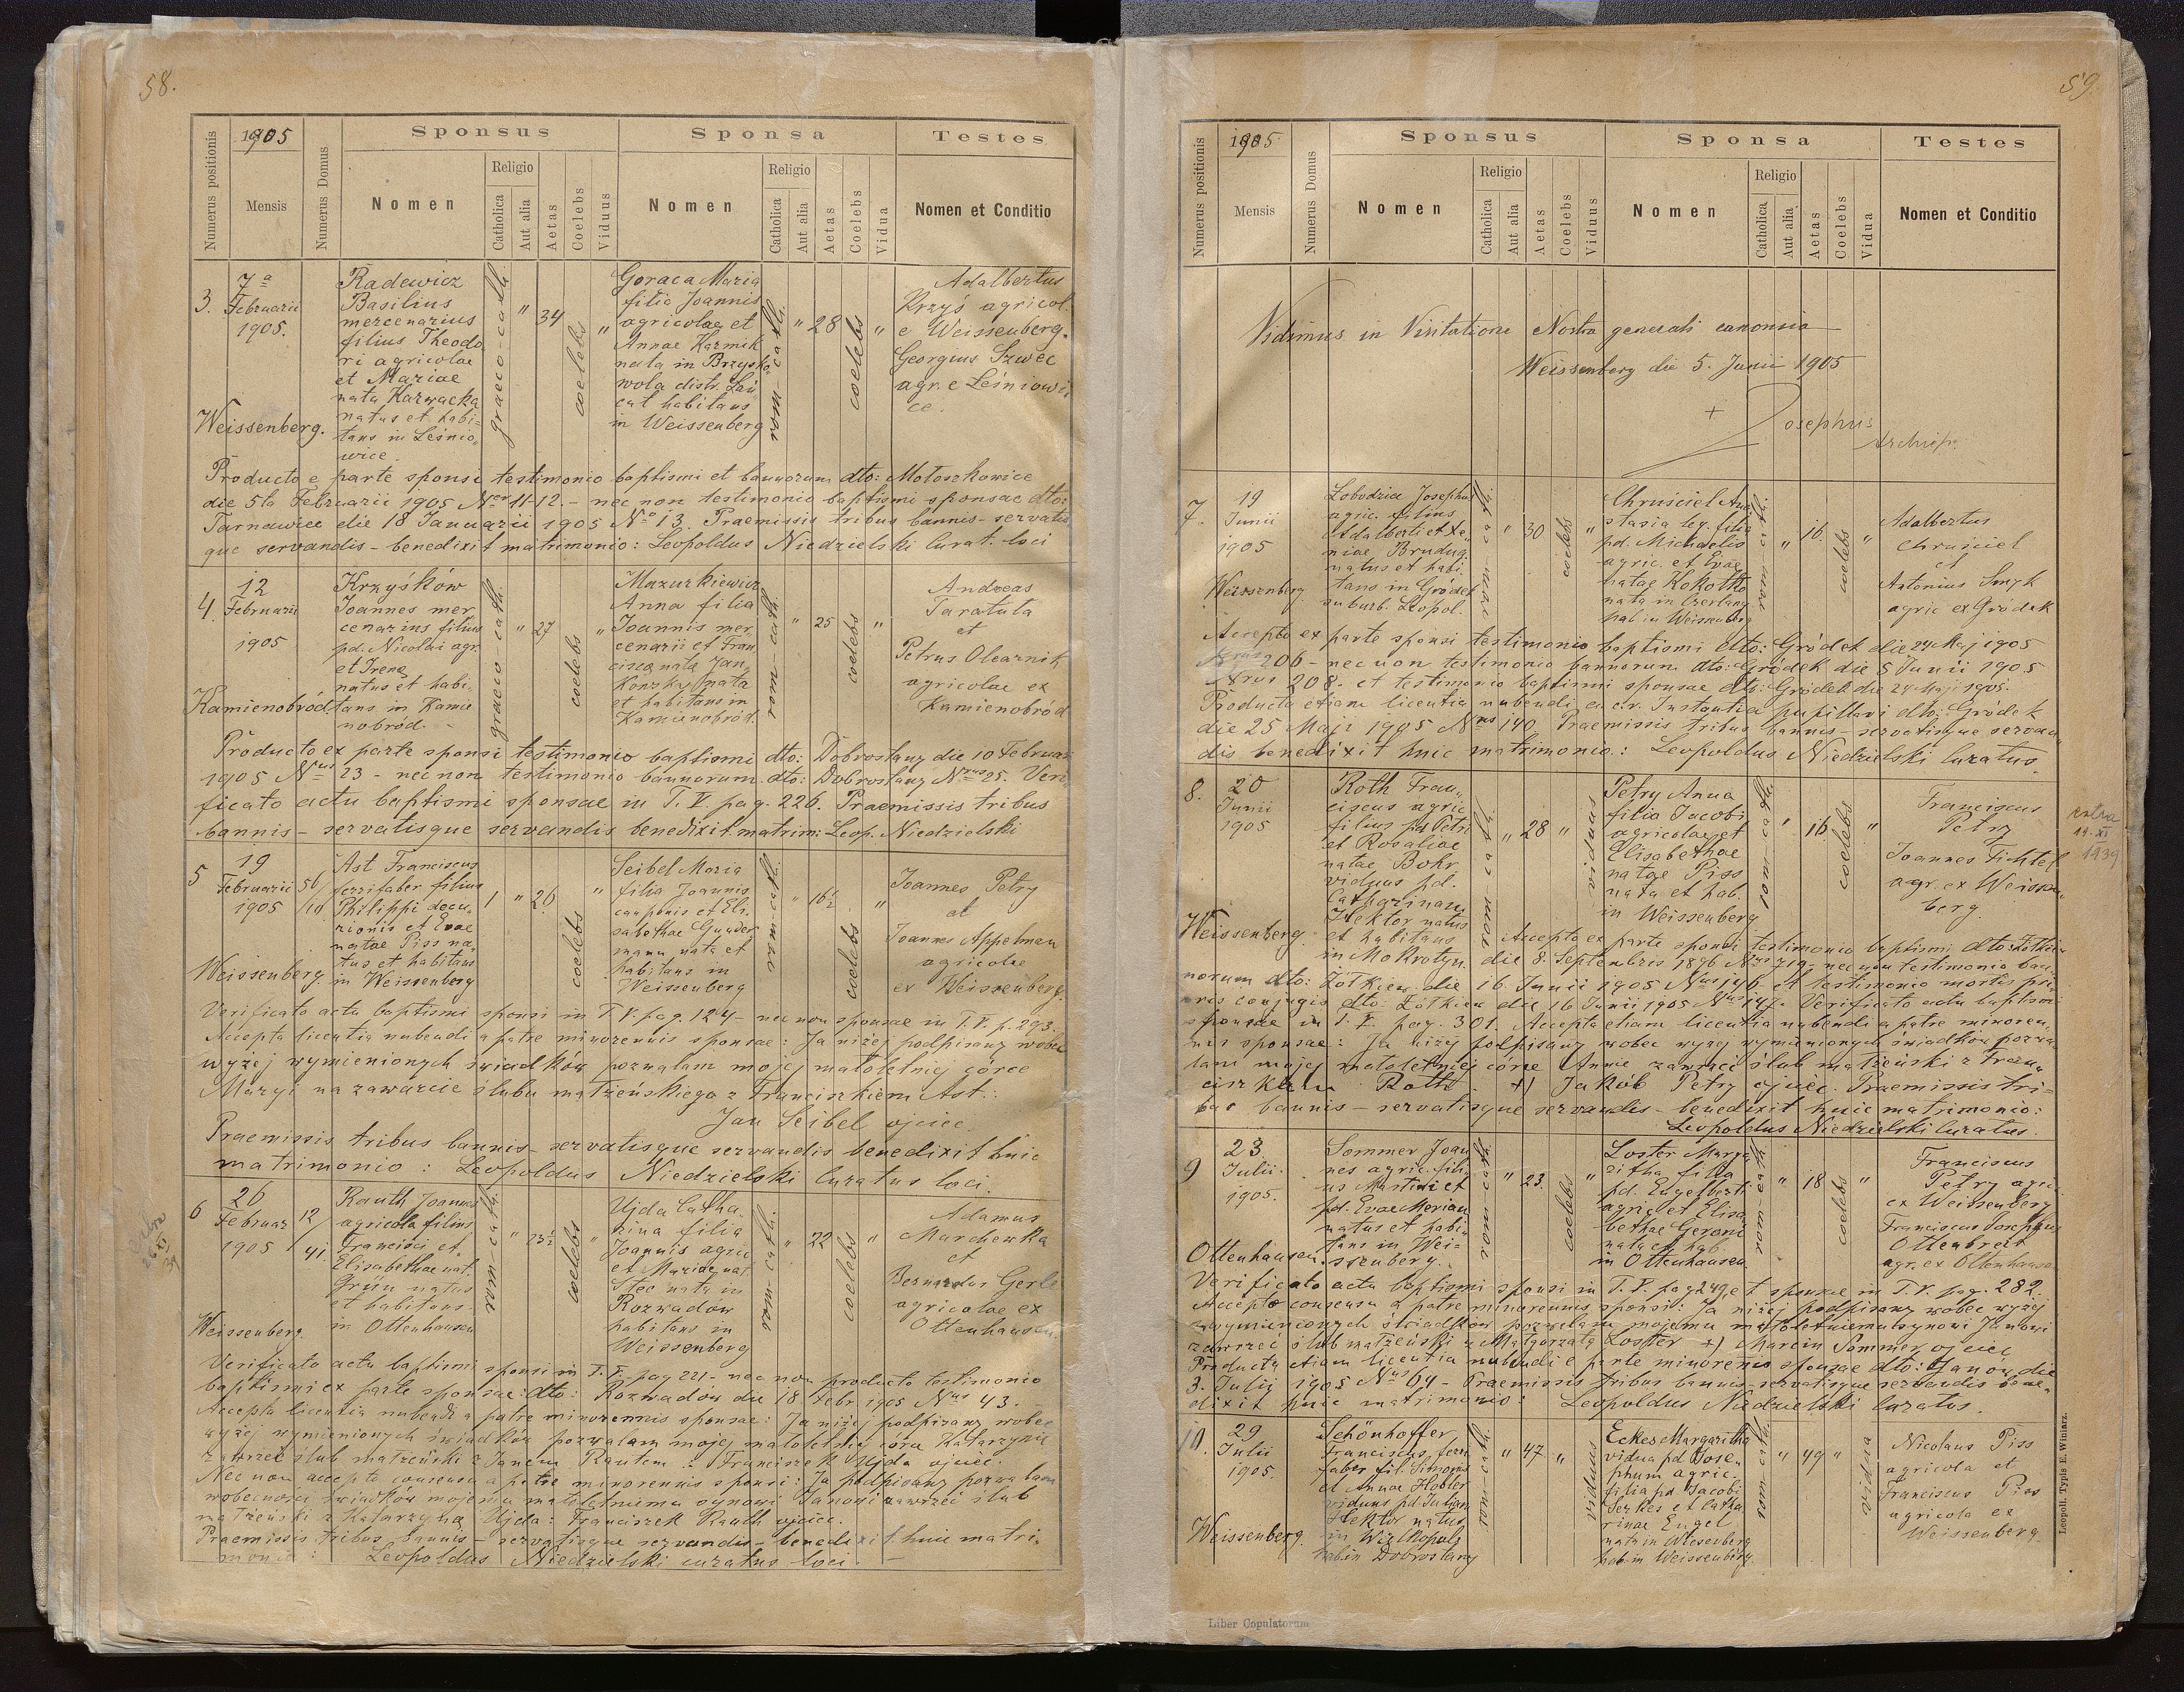 58.
1905
Sponsus
Sponsa
Testes
Numerus positionis
Mensis
Numerus Domus
Nomen
Religio
Catholica
Aut alia
Aetas
Coelebs
Viduus
Nomen
Religio
Catholica
Aut alia
Aetas
Coelebs
Vidua
Nomen et Conditio
3.
7a
Februarii
1905.
Weissenberg.
Radewicz
Basilius
mercenarius
filius Theodo
ri agricolae
et Mariae
nata Karwacka
natus et habi-
tans in Leśnio„
wice.
graeco-cath.
"
34
coelebs
"
Goraca Maria
filia Joannis
agricolae et
Annae Karmik
nata in Brzysko
wola distr. Łań
cut habitans
in Weissenberg
rom-cath.
"
28
coelebs
"
Adalbertus
Krzyś agricol.
e Weissenberg.
Georgius Szwec
agr. e Leśniowi
ce.
Producto e parte sponsi testimonio baptismi et bannorum dto: Mołoszkowice
die 5ta Februarii 1905 Nor 11-12. - nec non testimonio baptismi sponsae dto:
Tarnawiec die 18 Januarii 1905 No 13. Praemissis tribus bannis - servatis
que servandis - benedixit matrimonio: Leopoldus Niedzielski Curat. loci
4.
12
Februarii
1905
Kamienobród
Krzyśków
Joannes mer
cenarius filius
pd. Nicolai agr.
et Irenę
natus et habi„
tans in Kamie
nobród.
graeco-cath.
"
27
coelebs
"
Mazurkiewicz
Anna filia
Joannis mer„
cenarii et Fran
ciscę nata Jan„
Konzky nata
et habitans in
Kamienobród.
rom-cath.
"
25
coelebs
"
Andreas
Taratuta
et
Petrus Olearnik
agricolae ex
Kamienobród
Producto ex parte sponsi testimonio baptismi dto: Dobrostany die 10 Februar
1905 Nus 23 - nec non testimonio bannorum dto: Dobrostany Nrus 25. Veri
ficato actu baptismi sponsae in T. V. pag. 226. Praemissis tribus
bannis - servatisque servandis benedixit matrim: Leop. Niedzielski
5
19
Februarii
1905
Weissenberg.
56/10
Ast Franciscus
ferrifaber filius
Philippi decu„
rionis et Evae
natae Piss na„
tus et habitans
in Weissenberg
1
"
26
coelebs
"
Seibel Maria
filia Joannis
cauponis et Eli„
sabethae Gunder
mann nata et
habitans in
Weissenberg
rom-cath.
"
16½
coelebs
"
Joannes Petry
et
Joannes Appelman
agricolae
ex Weissenberg.
Verificato actu baptismi sponsi in T. V. pag. 124 - nec non sponsae in T. V. p. 293.
Accepta licentia nubendi a patre minorennis sponsae: Ja niżej podpisany wobec
wyżej wymienionych świadków pozwalam mojej małoletniej córce
Maryi na zawarcie ślubu małżeńskiego z Franciszkiem Ast.
Jan Seibel ojciec.
Praemissis tribus bannis - servatisque servandis benedixit huic
matrimonio: Leopoldus Niedzielski Curatus loci.
6
26
Februar
1905
Weissenberg.
12/41
Rauth Joannes
agricola filius
Francisci et
Elisabethae nat.
Grün natus
et habitans
in Ottenhausen
rom-cath.
"
23½
coelebs
"
Ujda Catha„
rina filia
Joannis agric
et Mariae nat
Stec nata in
Rozwadów
habitans in
Weissenberg
rom-cath.
"
22
coelebs
"
Adamus
Marchewka
et
Bernardus Gerle
agricolae ex
Ottenhausen.
Verificato actu baptismi sponsi in T. V. pag 221 - nec non producto testimonio
baptismi ex parte sponsae: dto: Rozwadów die 18 Febr. 1905 Nus 43.
Accepta licentia nubendi a patre minorennis sponsae: Ja niżej podpisany wobec
wyżej wymienionych świadków pozwalam mojej małoletniej córce Katarzynie
zawrzeć ślub małżeński z Janem Rautem : Franciszek Ujda ojciec.
Nec non accepto consensu a patre minorennis sponsi: Ja podpisany pozwalam
wobecności świadków mojemu małoletniemu synowi Janowi zawrzeć ślub
małżeński z Katarzyną Ujda: Franciszek Rauth ojciec.
Praemissis tribus bannis - servatisque servandis - benedixit huic matri„
monio: Leopoldus Niedzielski curatus loci. -
59.
1905
Sponsus
Sponsa
Testes
Numerus positionis
Mensis
Numerus Domus
Nomen
Religio
Catholica
Aut alia
Aetas
Coelebs
Viduus
Nomen
Religio
Catholica
Aut alia
Aetas
Coelebs
Vidua
Nomen et Conditio
Vidimus in Visitatione Nostra generali canonica
Weissenberg die 5. Junii 1905
+
Josephus
Archiep.
7.
19
Junii
1905
Weissenberg.
Łobodzia Josephus
agric. filius
Adalberti et Xe„
niae Brudug.
natus et habi„
tans in Gródek
suburb. Leopol.
rom-cath.
"
30
coelebs
"
Chruściel Ana
stasia leg. filia
pd. Michaelis
agric. et Evae
natae Kokotko
nata in Czerlany
hab in Weissenberg
rom-cath.
"
16.
coelebs
"
Adalbertus
Chruściel
et
Antonius Smyk
agric ex Gródek
Accepto ex parte sponsi testimonio baptismi dto: Gródek die 24 Maj 1905
Nrus 206 - nec non testimonio bannorum dto: Gródek die 5 Junii 1905
Nrus 208. et testimonio baptismi sponsae dto: Gródek die 24 Maji 1905.
Producta etiam licentia nubendi a cr. Instantia pupillari dto: Gródek
die 25 Maji 1905 Nus 140. Praemissis tribus bannis - servatisque servan„
dis benedixit huic matrimonio: Leopoldus Niedzielski Curatus.
8.
20
Junii
1905
Weissenberg.
Roth Fran„
ciscus agric
filius pd Petri
et Rosaliae
natae Bohr
viduus pd.
Catharinam
Hektor natus
et habitans
in Mokrotyn.
rom-cath.
"
28
"
viduus
Petry Anna
filia Jacobi
agricolae et
Elisabethae
natae Piss
nata et hab.
in Weissenberg
rom-cath.
"
16
coelebs
"
Franciscus
Petry
Joannes Fichtel
agr. ex Weissen„
berg.
extra
19.XI
1939
Accepto ex parte sponsi testimonio baptismi dto: Żółkiew
die 8. Septembris 1896 Nrus 719 - nec non testimonio ban„
norum dto: Żółkiew die 16 Junii 1905 Nus 146 et testimonio mortis pri„
oris conjugis dto: Żółkiew die 16 Junii 1905 Nus 147. Verificato actu baptismi
sponsae in T. V. pag. 301. Accepta etiam licentia nubendi a patre minoren„
nis sponsae: Ja niżej podpisany wobec wyżej wymienionych świadków pozwa
lam mojej małoletniej córce Annie zawrzeć ślub małżeński z Fran„
ciszkiem Roth. +) Jakób Petry ojciec. Praemissis tri-
bus bannis - servatisque servandis - benedixit huic matrimonio:
Leopoldus Niedzielski Curatus.
9
23
Julii.
1905.
Ottenhausen
Sommer Joan
nes agric. fili
us Martini et
pd. Evae Merian
natus et habi„
tans in Wei=
ssenberg.
rom-cath.
"
23.
coelebs
"
Loster Marga„
ritha filia
pd. Engelberti
agric. et Elisa
bethae Geroni
nata et hab.
in Ottenhausen
rom-cath.
"
18
coelebs
"
Franciscus
Petry agri.
ex Weissenberg
Franciscus Josephus
Ottenbreit
agr. ex Ottenhausen
Verificato actu baptismi sponsi in T. V. pag 249. et sponsae in T. V. pag. 282.
Accepto consensu a patre minorennis sponsi: Ja niżej podpisany wobec wyżej
wymienionych świadków pozwalam mojemu małoletniemu synowi Janowi
zawrzeć ślub małżeński z Małgorzatą Losster +) Marcin Sommer ojciec
Producta etiam licentia nubendi e parte minorennis sponsae dto: Janów die
3. Julij 1905 Nus 64 - Praemissis tribus bannis - servatisque servandis bene„
dixit huic matrimonio: Leopoldus Niedzielski Curatus.
10.
29
Julii
1905.
Weissenberg.
Schönhoffer
Franciscus, ferri
faber fil. Simonis
et Annae Hobler
viduus pd. Julian
Hektor natus
in Wielkopole
hab in Dobrostany
rom-cath.
"
47
"
viduus
Eckes Margaritha
vidua pd Jose„
phum agric.
filia pd Jacobi
Serkes et Catha
rinae Engel
nata in Wiesenberg
hab. in Weissenberg.
rom-cath.
"
49
"
vidua
Nicolaus Piss
agricola et
Franciscus Piss
agricola ex
Weissenberg.
Leopoli. Typis E. Winiarz.
Liber Copulatorum